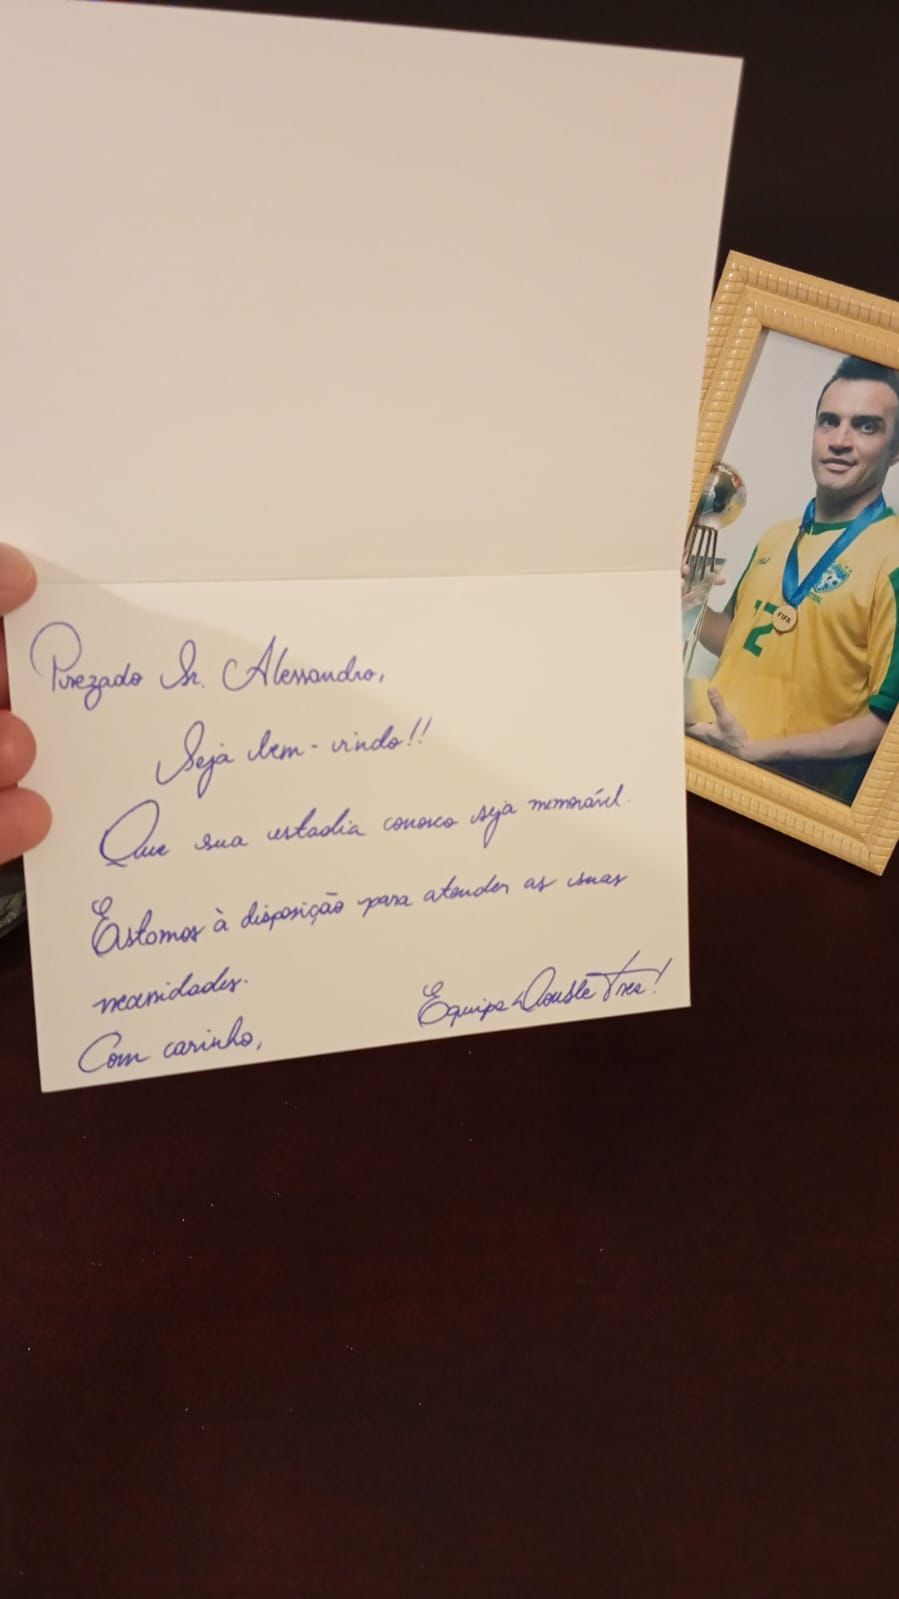 Prezado Sr. Alessandro,
Seja bem-vindo!!
Que sua estadia conosco seja memorável.
Estamos à disposição para atender as suas
necessidades.
Com carinho,
Equipe Double Tree!
12
FIFA